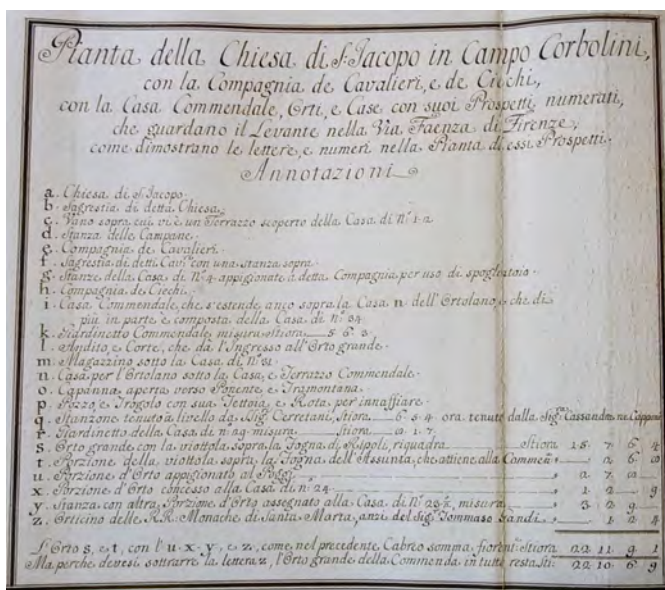 Pianta della Chiesa di S: Jacopo in Campo Corbolini,
con la Compagnia de Cavalieri, e de Ciechi,
con la Casa Commendale, Orti, e Case con suoi Prospetti numerati,
che guardano il Levante nella Via Faenza di Firenze,
come dimostrano le lettere, e numeri nella Pianta, di essi Prospetti.
Annotazioni
a. Chiesa di S. Jacopo.
b. Sagrestia di detta Chiesa.
c. Vano sopra cui vi è un Terrazzo scoperto della Casa di N.° 12
d. Stanza delle Campane.
e. Compagnia de Cavalieri.
f. Sagrestia di detti Cav.ri con una Stanza sopra.
g. Stanze della Casa di N.° 4 appigionate a detta Compagnia per uso di spogliatoio.
h. Compagnia de Ciechi.
i. Casa Commendale, che s'estende anco sopra la Casa n. dell'Ortolano, e che di
più in parte è composta della Casa di N.° 34
k. Giardinetto Commendale misura Stiora 5 6 3
l. Andito, e Corte, che dà l'Ingresso all'Orto grande.
m. Magazzino sotto la Casa di N.° 31
n. Casa per l'Ortolano sotto la Casa, e Terrazzo Commendale.
o. Capanna aperta verso Ponente e Tramontana.
p. Pozzo, e Trogolo con sua Tettoia, e Rota per innaffiare.
q. Stanzone tenuto à livello da Sig.ri Cerretani, Stiora 6 5 4 ora tenuto dalla Sig.ra Cassandra ne Capponi
r. Giardinetto della Casa di N.° 29 misura Stiora 1 7
S. Orto grande con la viottola sopra la Fogna di Ripoli, riquadra Stiora 15 7 6 4
t. Porzione della viottola sopra la Fogna dell'Assunta, che attiene alla Commen.a 2 6
u. Porzione d'Orto appigionato al Poggi 2 7
x. Porzione d'Orto concesso alla Casa di N.° 24 1 2 9
y. Stanza con altra Porzione d'Orto assegnato alla Casa di N.° 23, misura 3 2 9
z. Orticino delle RR. Monache di Santa Marta, anzi del Sig.r Tommaso Gandi 1 2 4
L'Orto S, e t, con l'u. x. y, e z, come nel precedente Cabreo somma fiorent: Stiora 22 11 9 1
Ma perche devesi sottrarre la lettera z, l'Orto grande della Commenda in tutto resta Sti: 22 10 6 9